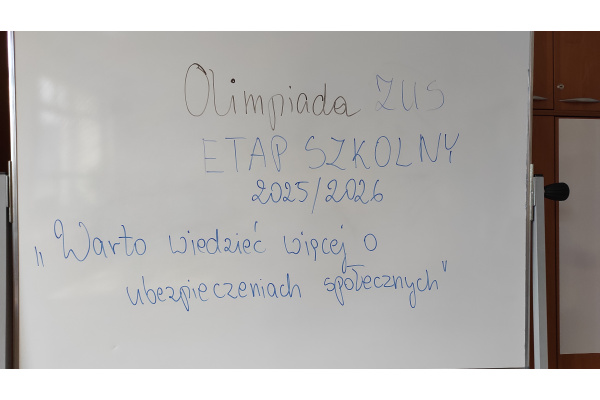 Olimpiada ZUS
ETAP SZKOLNY
2025/2026
„Warto wiedzieć więcej o
ubezpieczeniach społecznych"